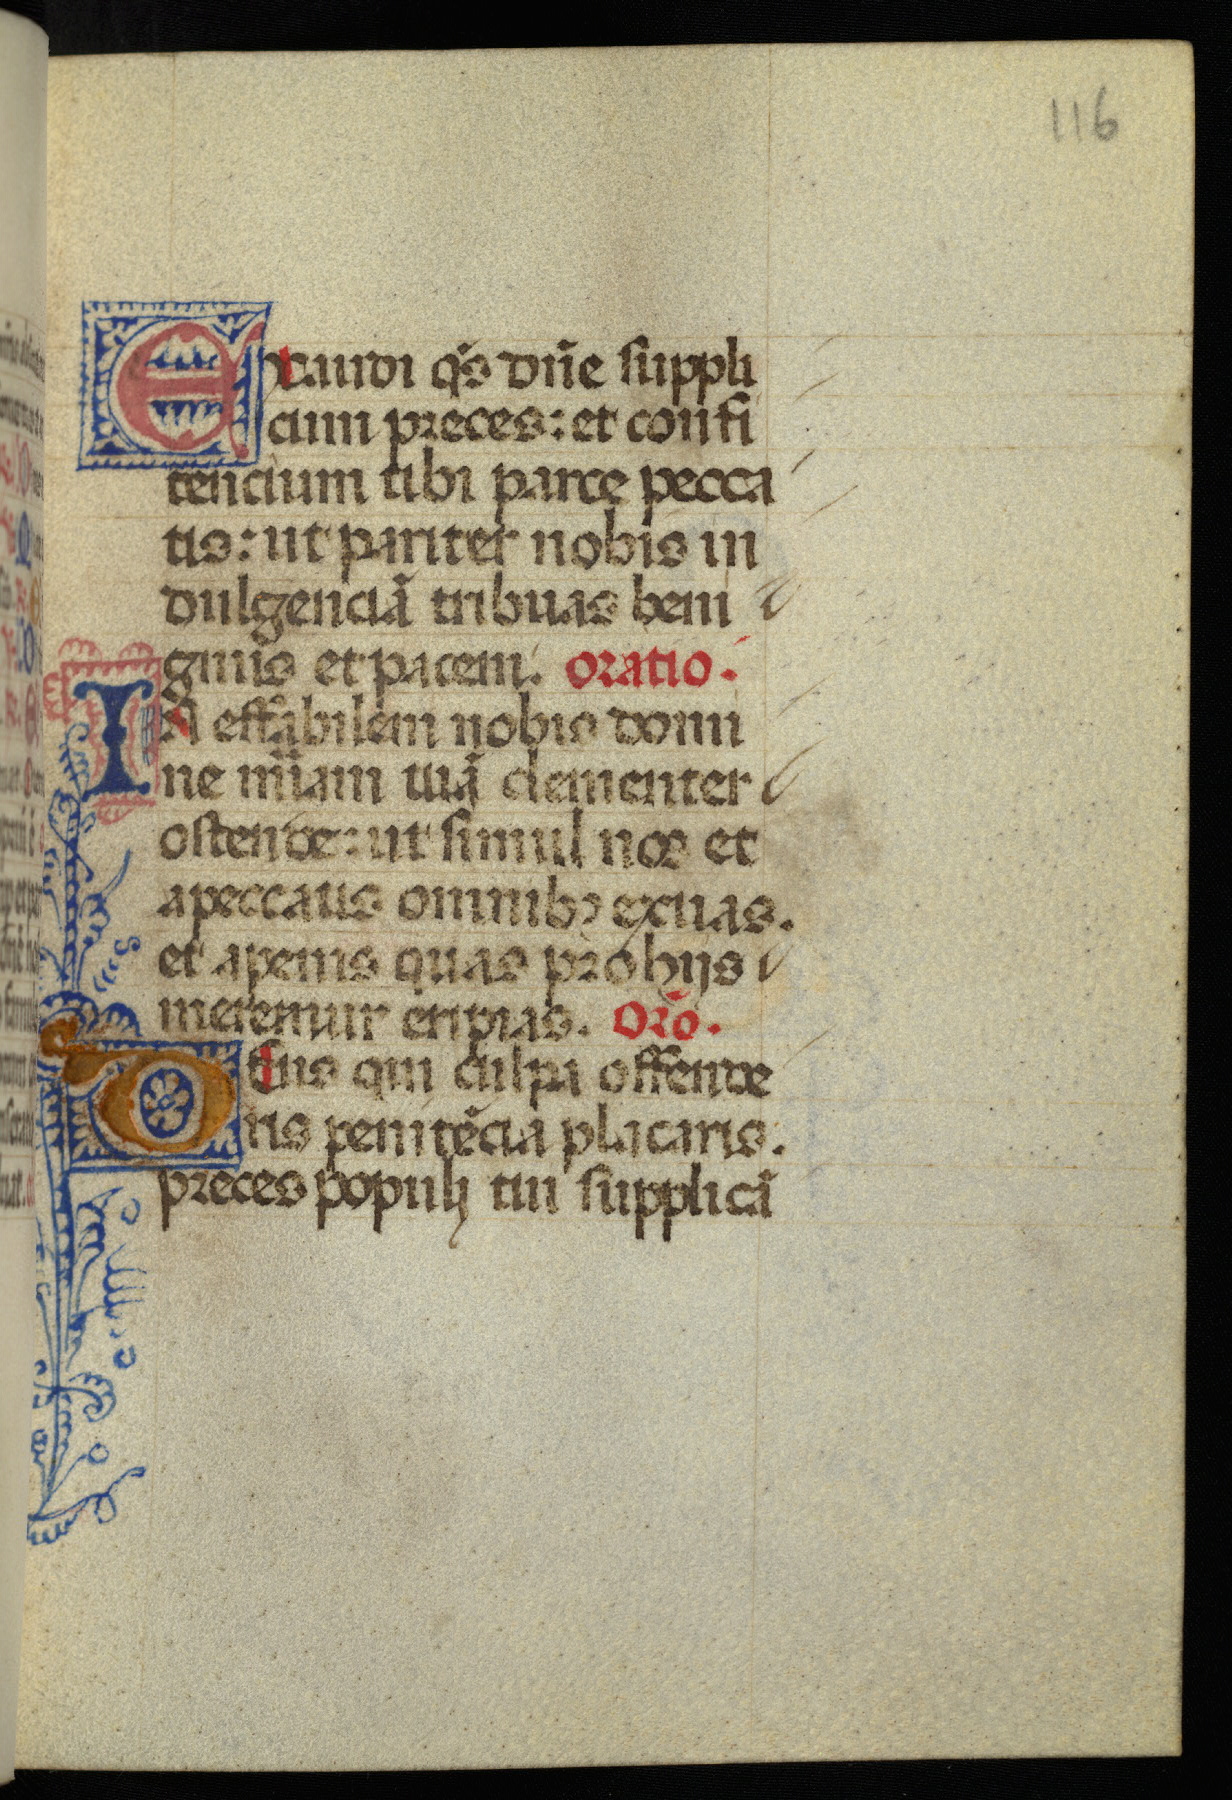 116
Exaudi qs̃ dñe suppli
cum preces: et confi
tencium tibi parce pecca
tis: ut pariter nobis in
dulgenciã tribuas beni
gnus et pacem. oratio.
IN effabilem nobis domi
ne miãm tuã clementer
ostende: ut simul nos et
apeccatis omnibꝫ exuas.
et apenis quas prohijs
meremur eripias. orõ.
Deus qui culpa offende
ris penitẽcia placaris.
preces populi tui supplicã